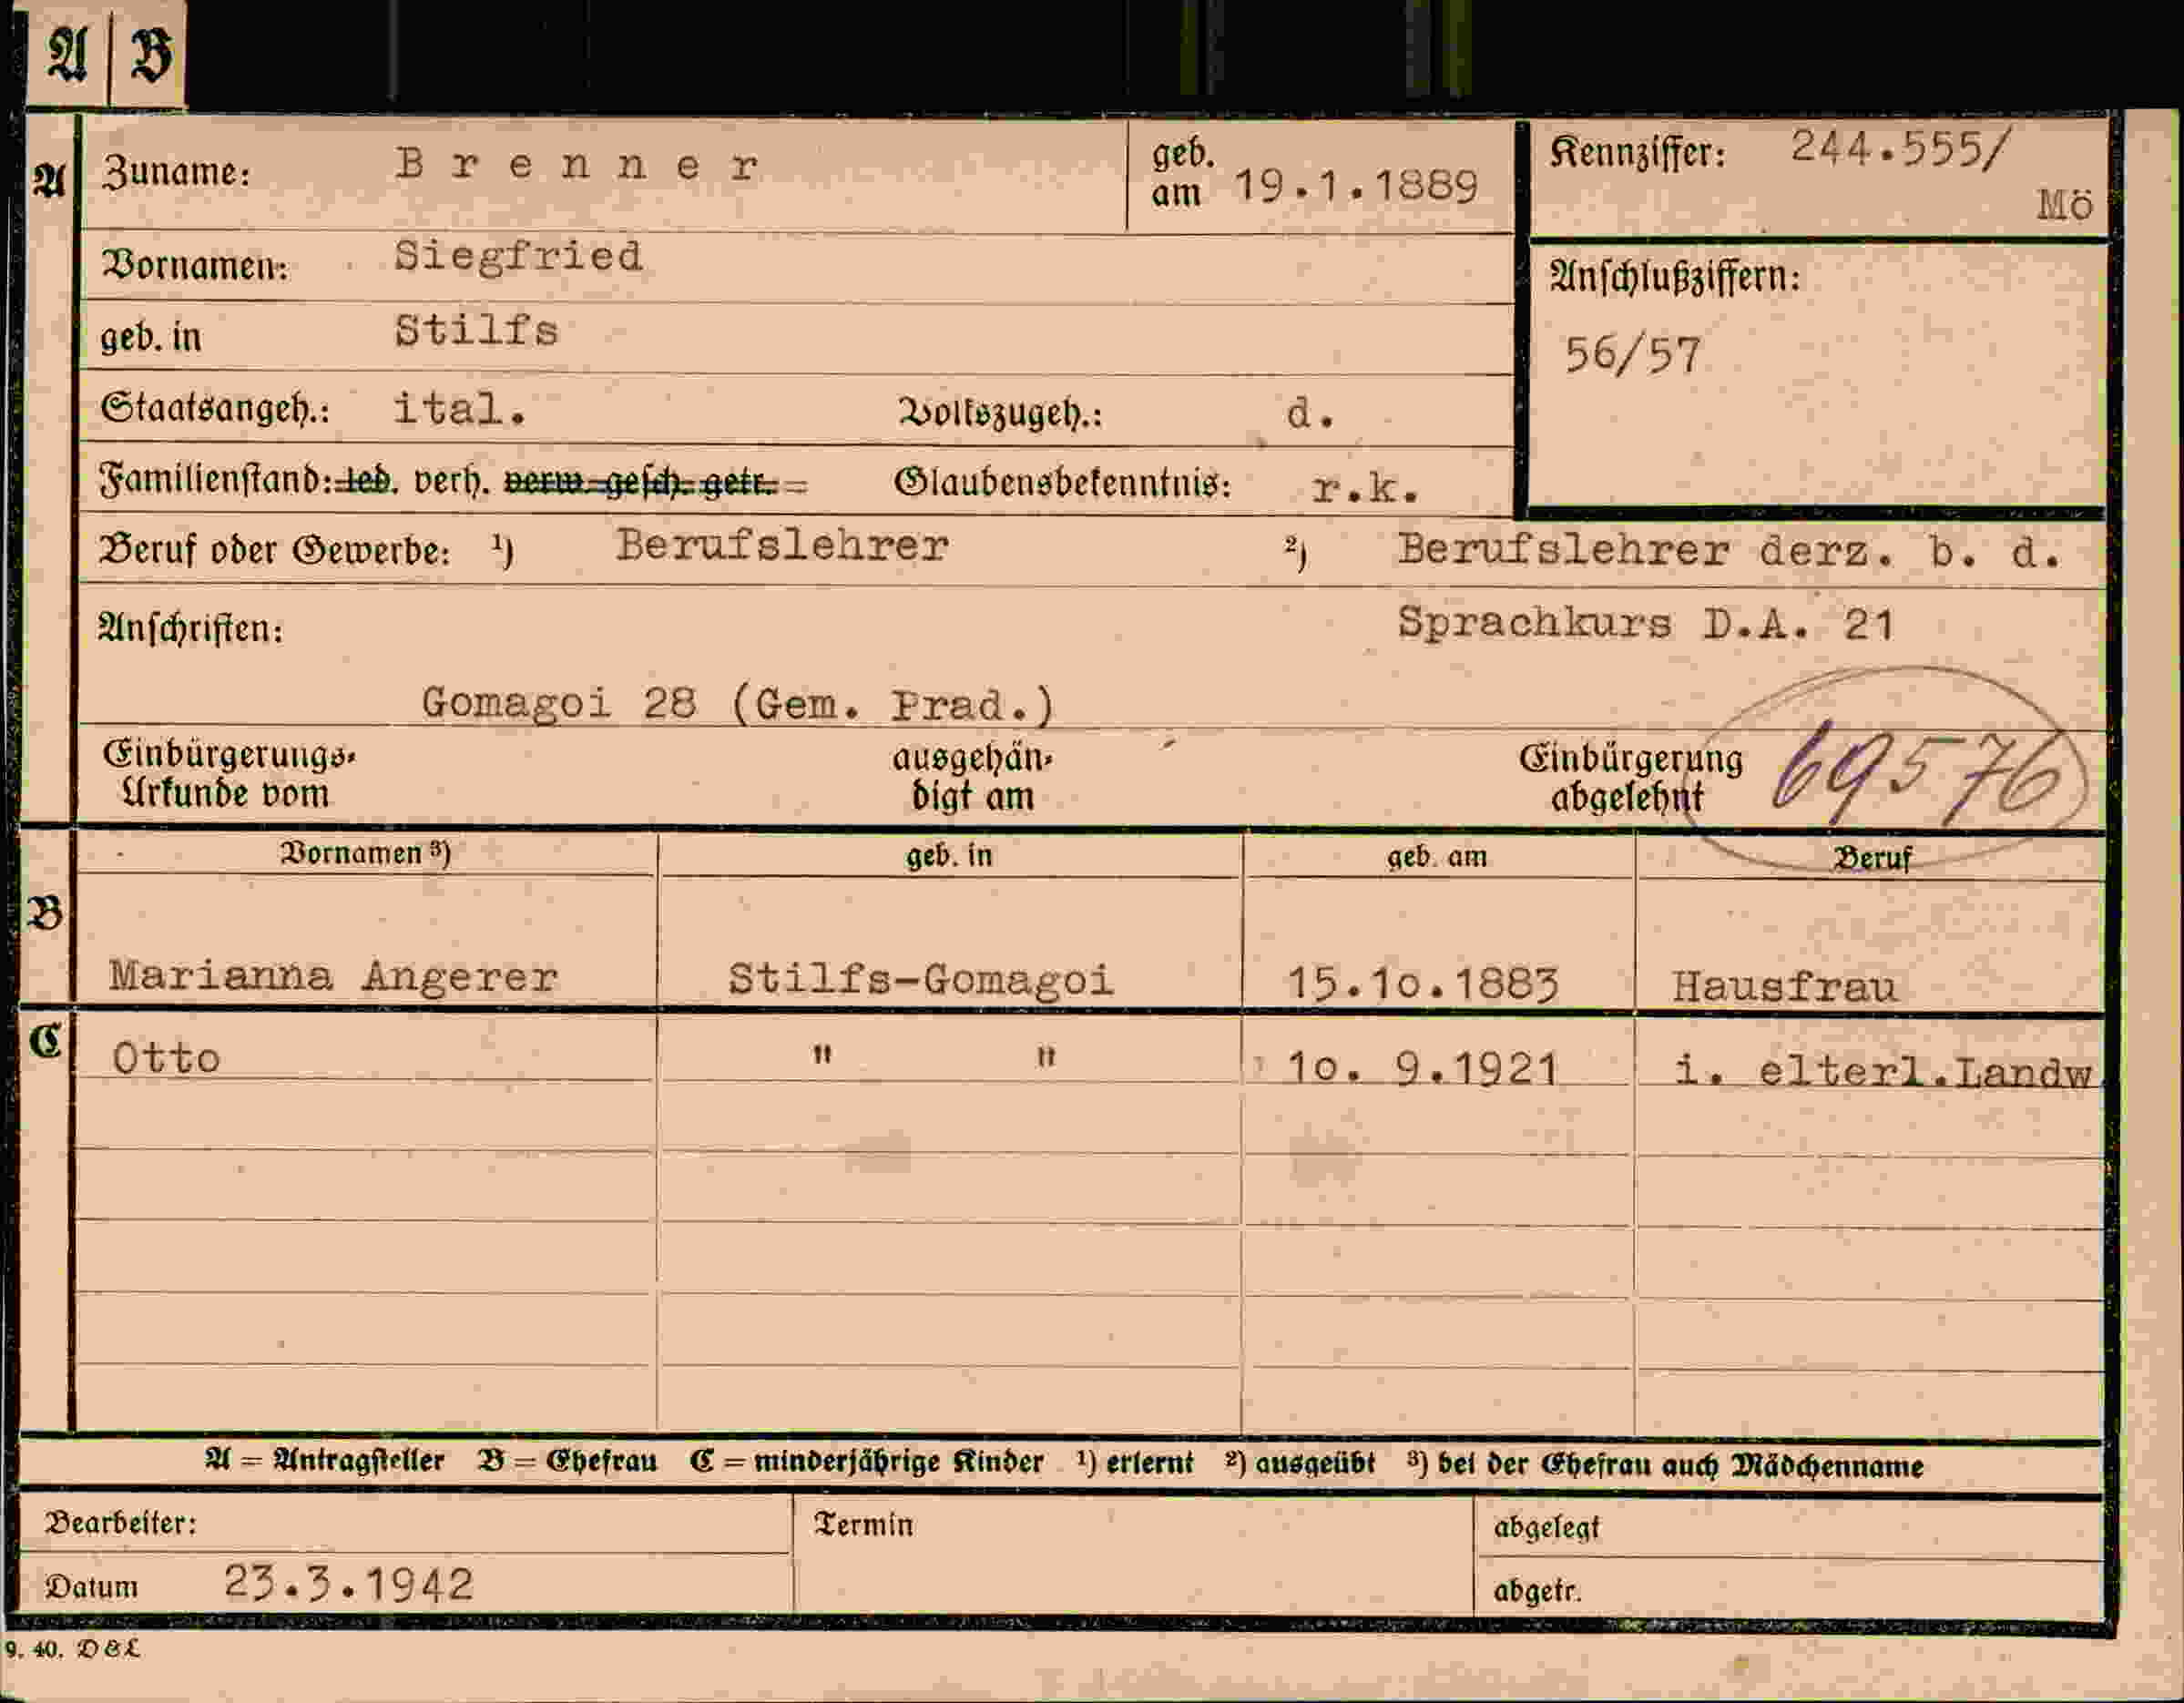 A | B
A Zuname: Brenner geb. am 19.1.1889 Kennziffer: 244.555/
Mö
Vornamen: Siegfried Anschlußziffern:
geb. in Stilfs 56/57
Staatsangeh.: ital. Volkszugeh.: d.
Familienstand: led. verh. verw. gesch. getr. = Glaubensbekenntnis: r.k.
Beruf oder Gewerbe: ¹) Berufslehrer ²) Berufslehrer derz. b. d.
Anschriften: Sprachkurs D.A. 21
Gomagoi 28 (Gem. Prad.)
Einbürgerungs- ausgehän- Einbürgerung 69576
Urkunde vom digt am abgelehnt
Vornamen ³) geb. in geb. am Beruf
B
Marianna Angerer Stilfs-Gomagoi 15.10.1883 Hausfrau
C Otto " " 10. 9.1921 i. elterl.Landw
A = Antragsteller B = Ehefrau C = minderjährige Kinder ¹) erlernt ²) ausgeübt ³) bei der Ehefrau auch Mädchenname
Bearbeiter: Termin abgelegt
Datum 23.3.1942 abgetr.
9. 40. DBL